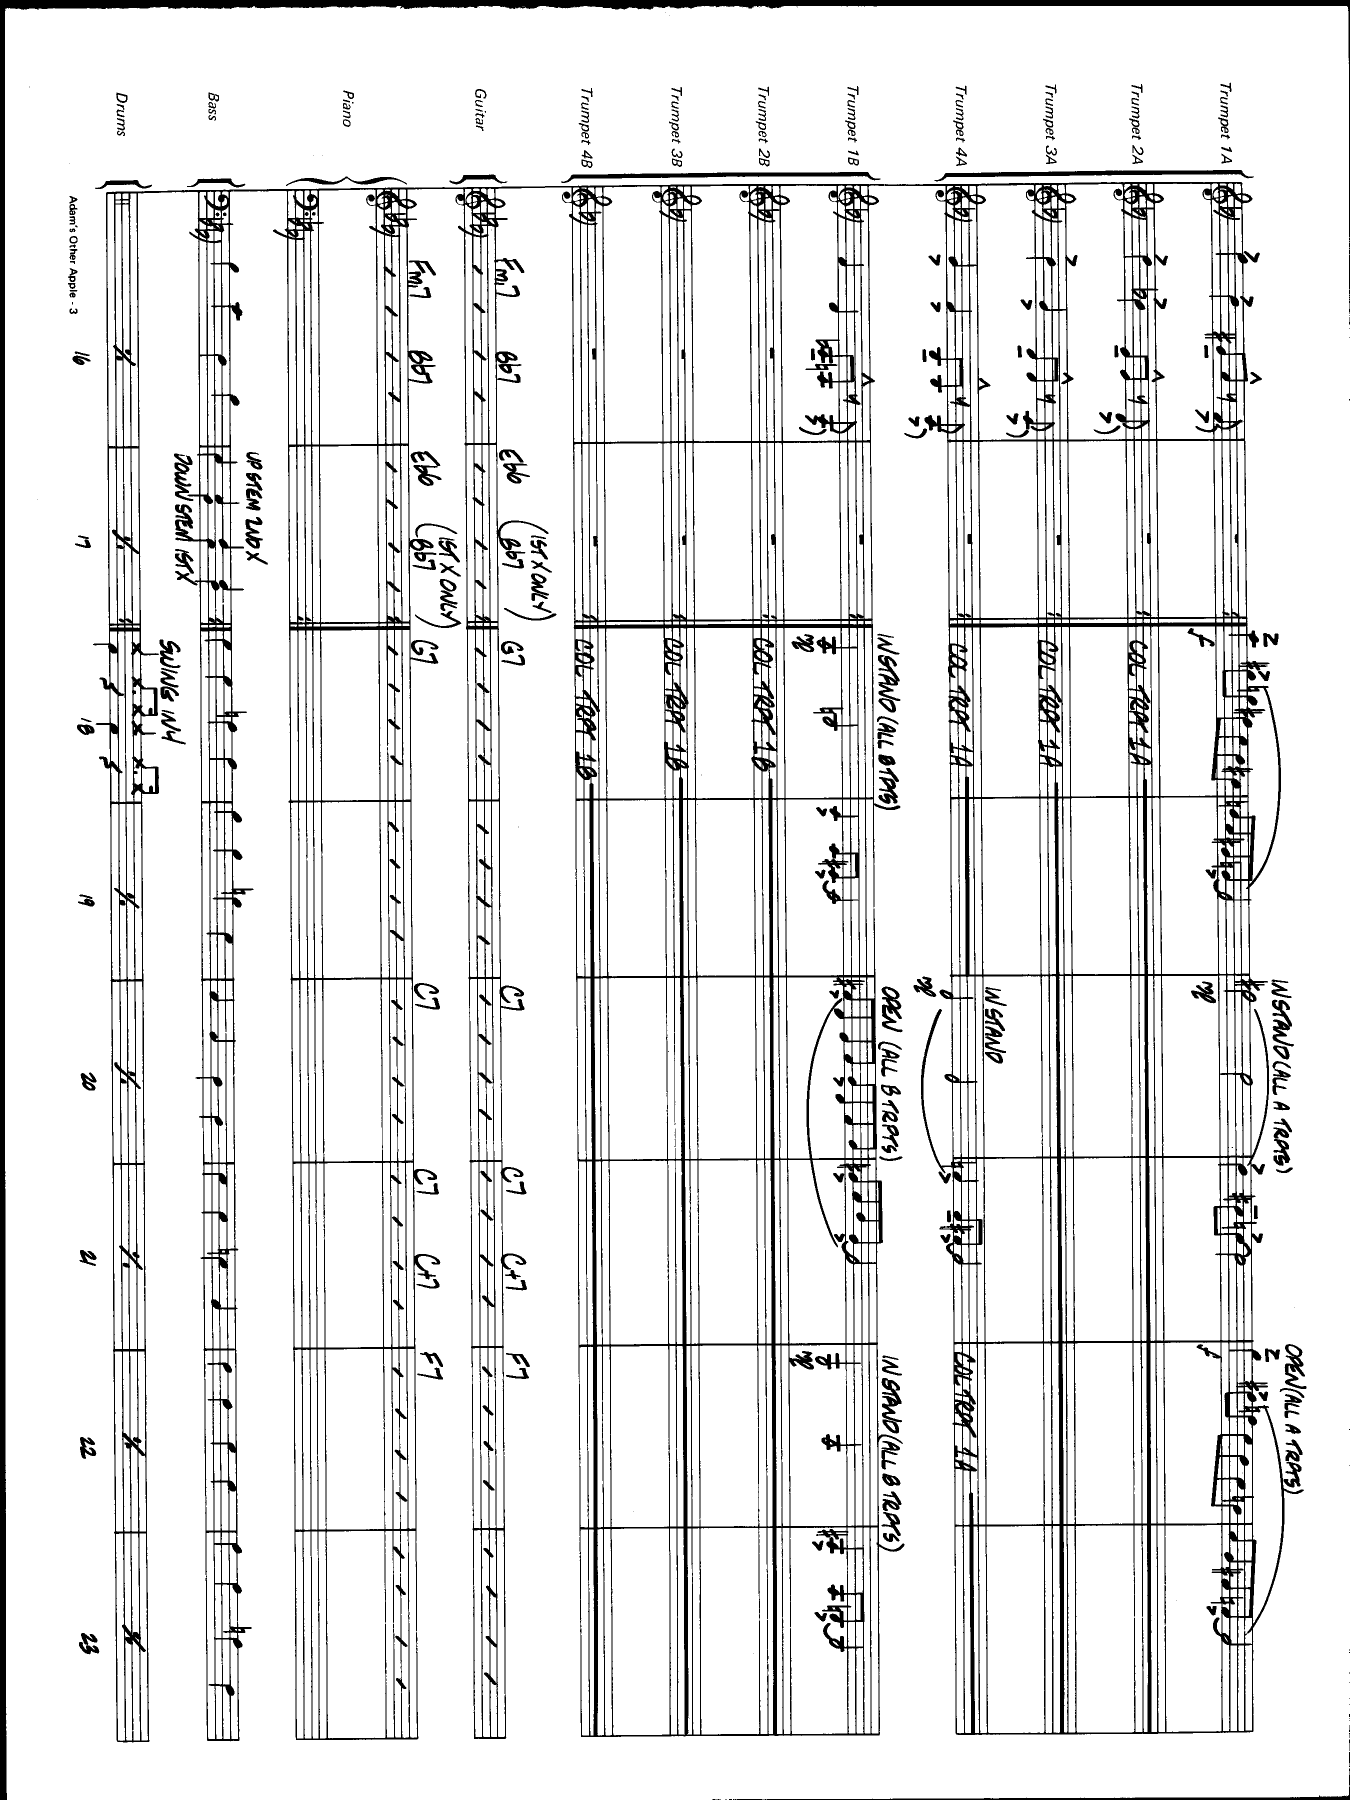 Trumpet 1A
OPEN (ALL A TRPTS)
IN STAND (ALL A TRPTS)
f
mp
f
Trumpet 2A
COL TRPT 1A
Trumpet 3A
COL TRPT 1A
Trumpet 4A
IN STAND
COL TRPT 1A
mp
COL TRPT 1A
Trumpet 1B
IN STAND (ALL B TRPTS)
OPEN (ALL B TRPTS)
IN STAND (ALL B TRPTS)
mp
mp
Trumpet 2B
COL TRPT 1B
Trumpet 3B
COL TRPT 1B
Trumpet 4B
COL TRPT 1B
Guitar
(1ST X ONLY)
Fmi7 Bb7 Eb6 Bb7 G7 C7 C7 C+7 F7
Piano
(1ST X ONLY)
Fmi7 Bb7 Eb6 Bb7 G7 C7 C7 C+7 F7
Bass
UP STEM 2ND X
DOWN STEM 1ST X
Drums
SWING IN 4
16 17 18 19 20 21 22 23
Adam's Other Apple - 3